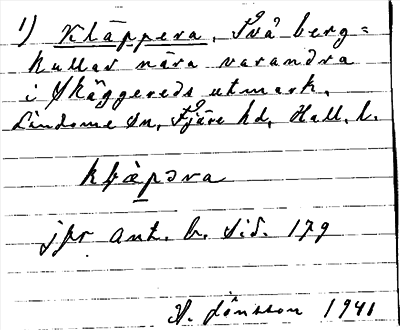 1) Kläppera. Två berg=
kullar nära varandra
i Skäggereds utmark,
Lindome sn, Fjäre hd, Hall. l.
kþäpəra
jfr ant. b. sid. 179
V. Jönsson 1941